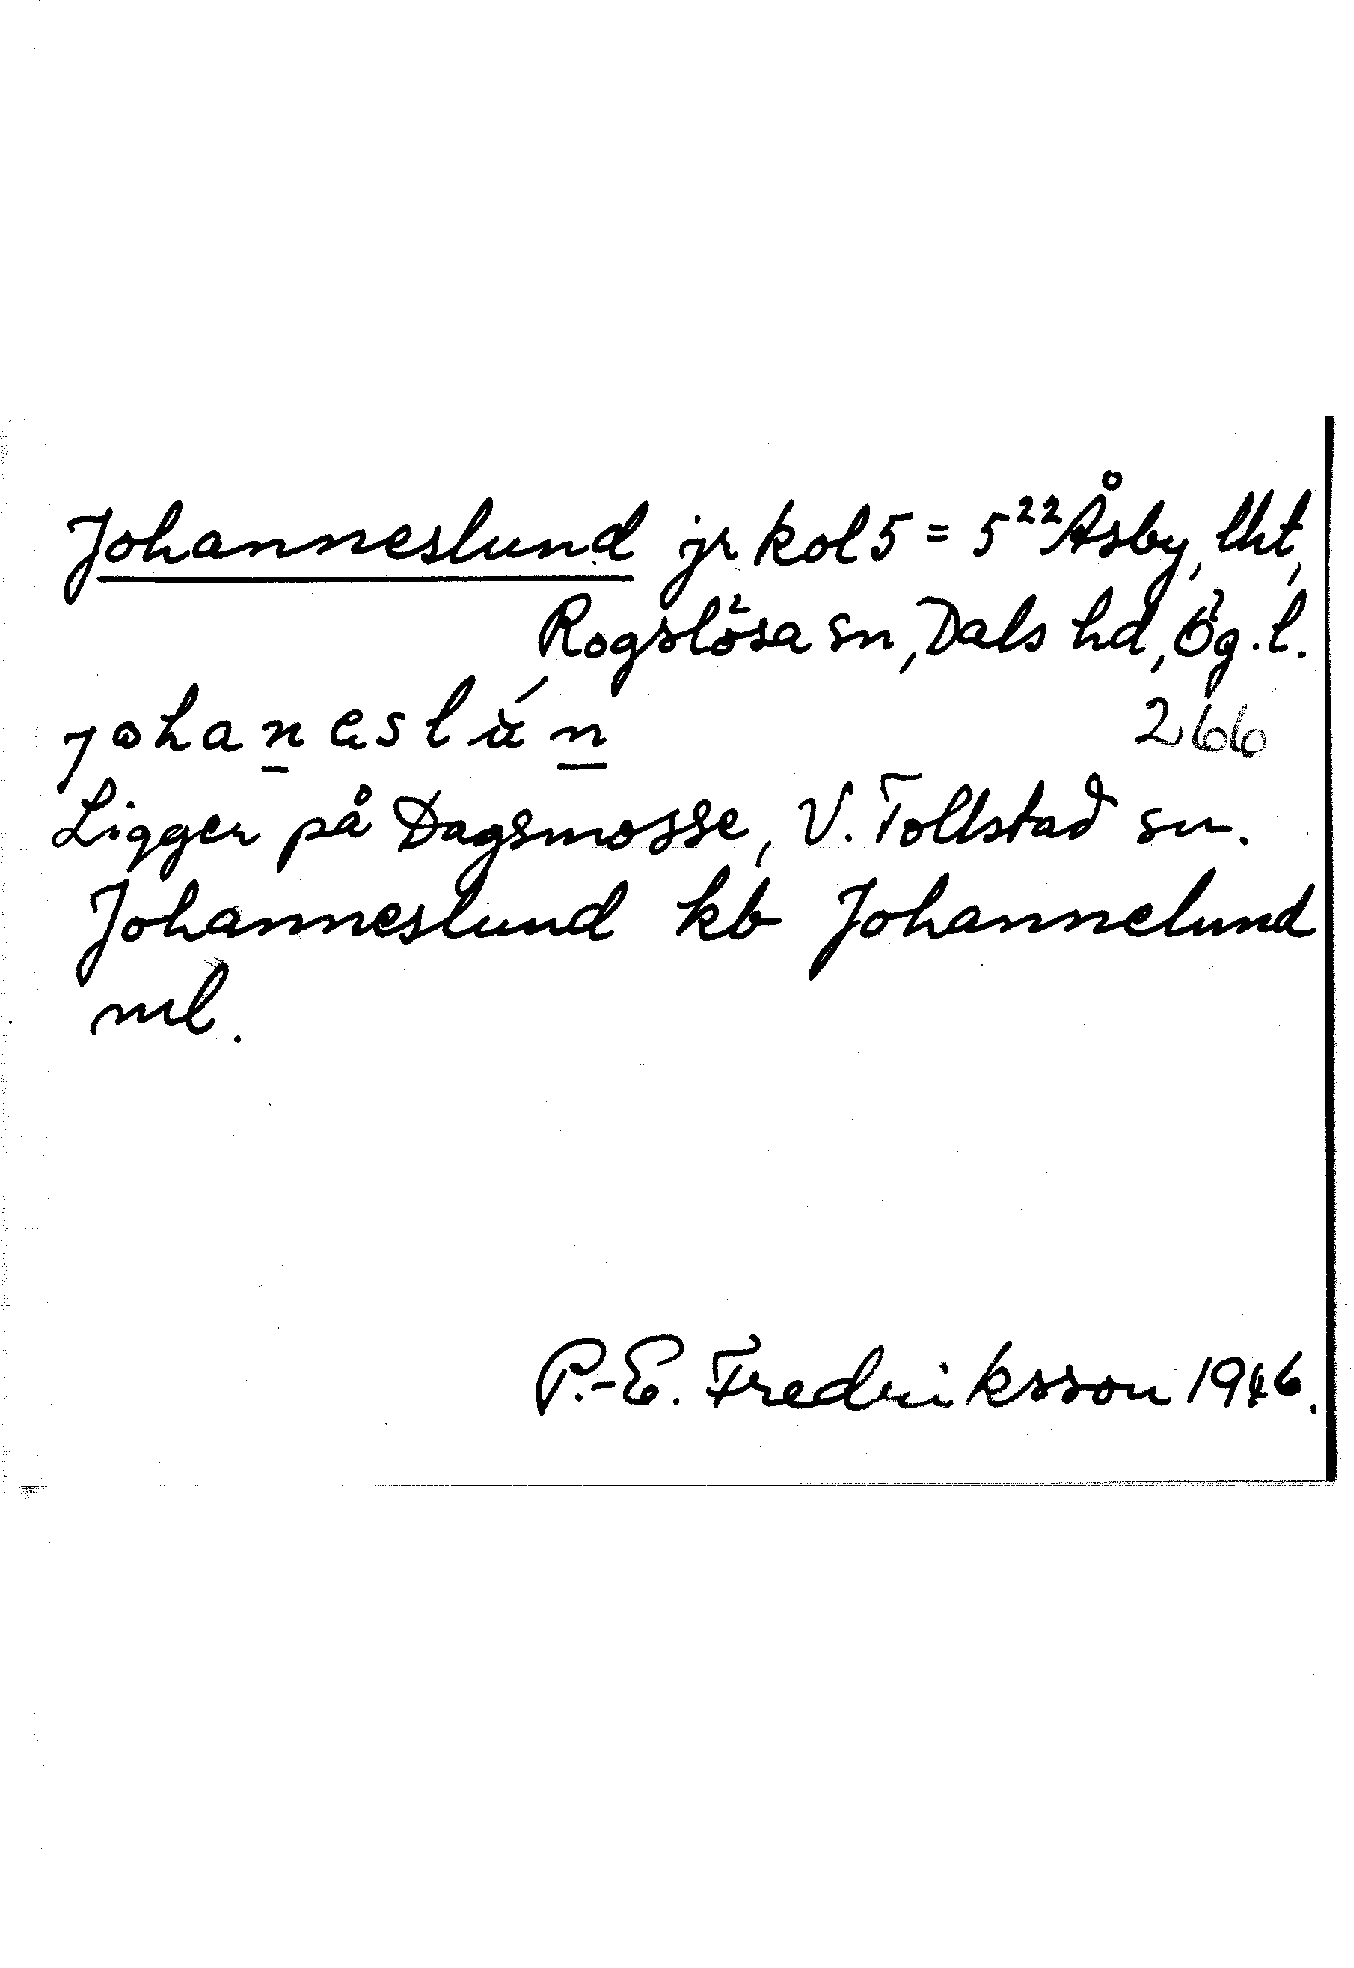 Johanneslund jr kol 5 = 5²² Åsby, lht,
Rogslösa sn, Dals hd, Ög. l.
266
Ligger på Dagsmosse, V. Tollstad sn.
Johanneslund kb Johannelund
ml.
P.-E. Fredriksson 1946.